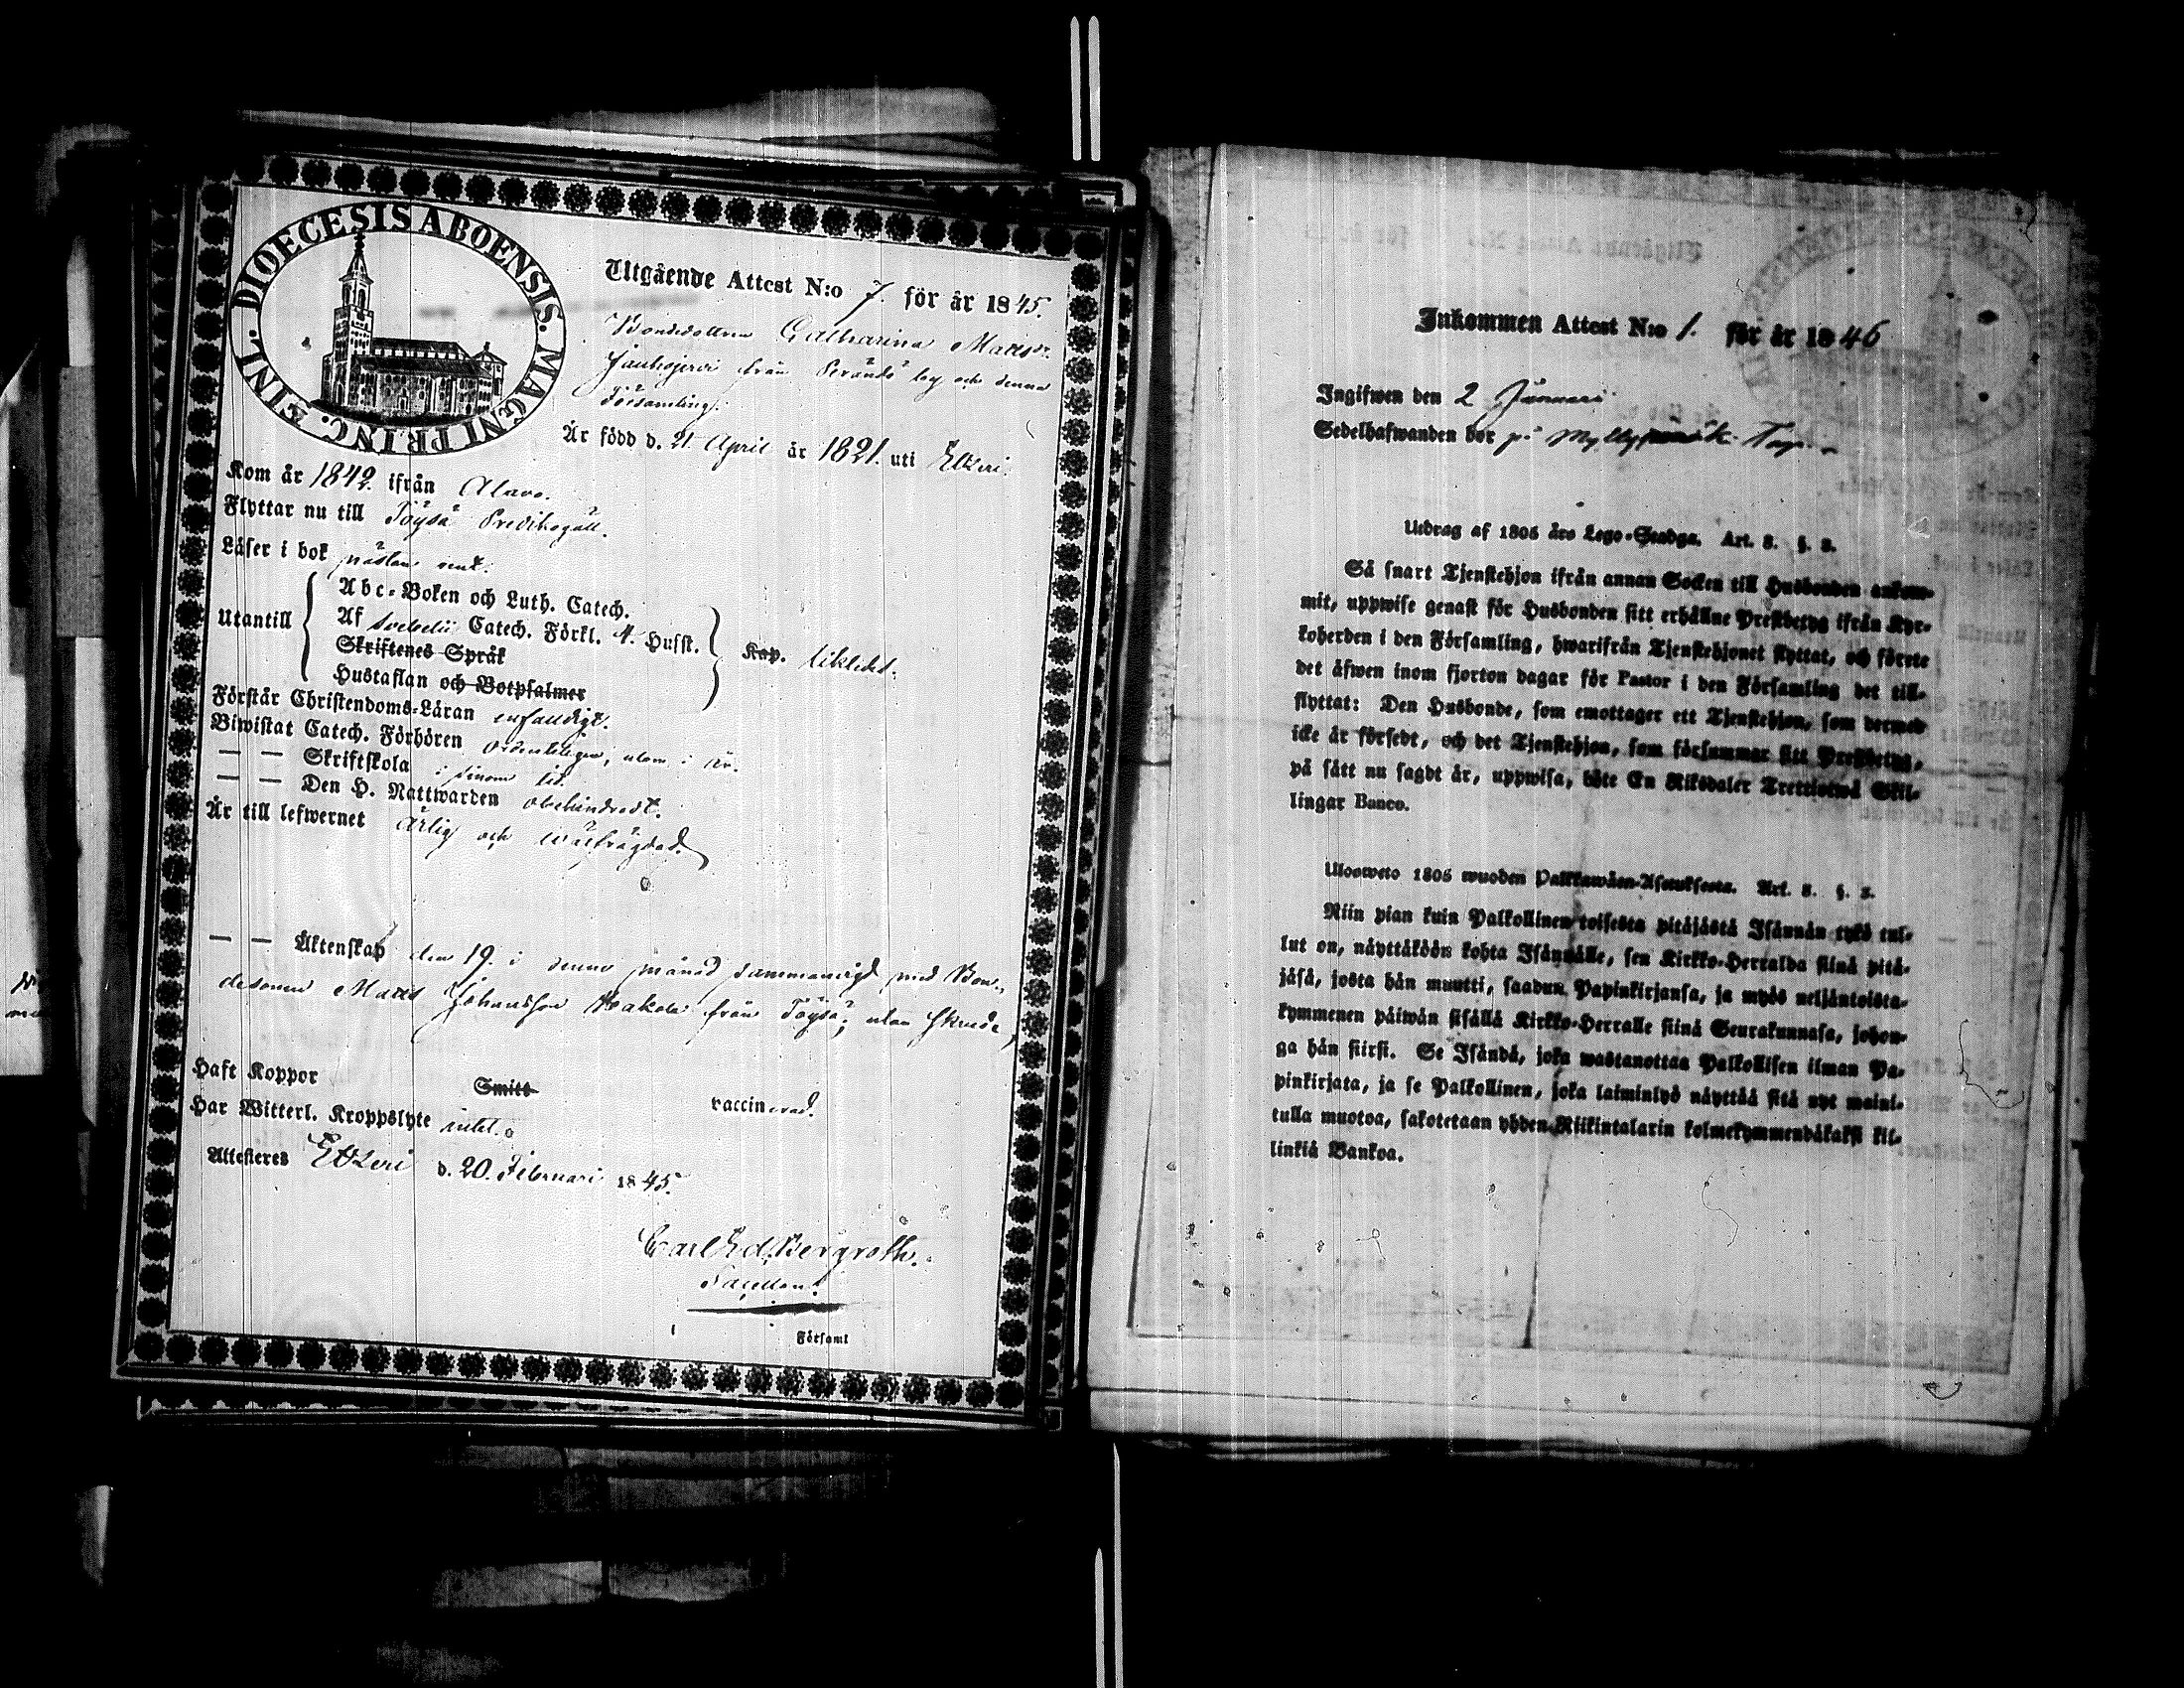 DIOECESIS ABOENSIS. MAGNI PRINC. FINL.
Utgående Attest N:o 7. för år 1845.
Bondedottren Catharina Matts
från Perändö by och denna
Församling.
Är född d. 21 April år 1821. uti Etzeri.
Kom år 1842. ifrån Alavo.
Flyttar nu till Töysä Predikogäll.
Läser i bok nästan rent.
Utantill
Abc-Boken och Luth. Catech.
Af Svebelii Catech. Förkl. 4. Hufst.
Skriftenes Språk
Hustaflan och Botpsalmer
Kap. likledes.
Förstår Christendoms-Läran enfaldigt.
Biwistat Catech. Förhören ordenteligen, utom i år.
— — Skriftskola i sinom tid.
— — Den H. Nattwarden obehindradt.
Är till lefwernet ärlig och wälfrägdad.
— — Äktenskap den 19. i denna månad sammanvigd med Bon-
desonen Matts Johansson från Töysä;
Haft Koppor Smitt vaccinerad.
Har Witterl. Kroppslyte intet.
Attesteres Etzeri d. 20. Februari 1845.
Carl Ed. Bergroth.
Sacellan.
Församl
Inkommen Attest N:o 1. för år 1846
Ingifwen den 2 Januari
Sedelhafwanden bor på
Utdrag af 1805 års Lego-Stadga. Art. 8. §. 8.
Så snart Tjenstehjon ifrån annan Socken till Husbonden ankom-
mit, uppwise genast för Husbonden sitt erhållne Prestbetyg ifrån Kyr-
koherden i den Församling, hwarifrån Tjenstehjonet flyttat, och förete
det äfwen inom fjorton dagar för Pastor i den Församling det till-
flyttat: Den Husbonde, som emottager ett Tjenstehjon, som dermed
icke är försedt, och det Tjenstehjon, som försummar sitt Prestbetyg,
på sätt nu sagdt är, uppwisa, böte En Riksdaler Trettiotwå Skil-
lingar Banco.
Ulosweto 1805 wuoden Palkkawäen-Asetuksesta. Art. 8. §. 8.
Niin pian kuin Palkollinen toisesta pitäjästä Isännän tykö tul-
lut on, näyttäköön kohta Isännälle, sen Kirkko-Herralda siinä pitä-
jäsä, josta hän muutti, saadun Papinkirjansa, ja myös neljäntoista-
kymmenen päiwän sisällä Kirkko-Herralle siinä Seurakunnasa, johon-
ga hän siirsi. Se Isändä, joka wastanottaa Palkollisen ilman Pa-
pinkirjata, ja se Palkollinen, joka laiminlyö näyttää sitä nyt maini-
tulla muotoa, sakotetaan yhden Riikintalarin kolmekymmendäkaksi kil-
linkiä Bankoa.